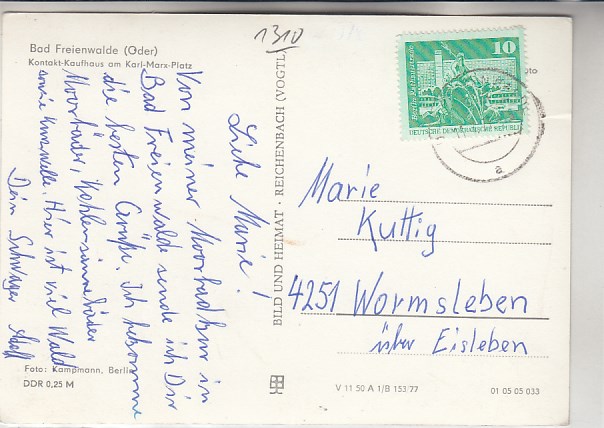 1310
Bad Freienwalde (Oder)
Kontakt-Kaufhaus am Karl-Marx-Platz
Liebe Marie!
Von meiner Moorbadkur in
Bad Freienwalde sende ich Dir
die besten Grüße. Ich bekomme
Moorbäder, Kohlensäurebäder
sowie Kurzwelle. Hier ist viel Wald
Dein Schwager Adolf
Foto: Kampmann, Berlin
DDR 0,25 M
BILD UND HEIMAT · REICHENBACH (VOGTL
10
Berlin, Rathausstraße
DEUTSCHE DEMOKRATISCHE REPUBLIK
oto
a
Marie
Kuttig
4251 Wormsleben
über Eisleben
V 11 50 A 1/B 153/77
01 05 05 033